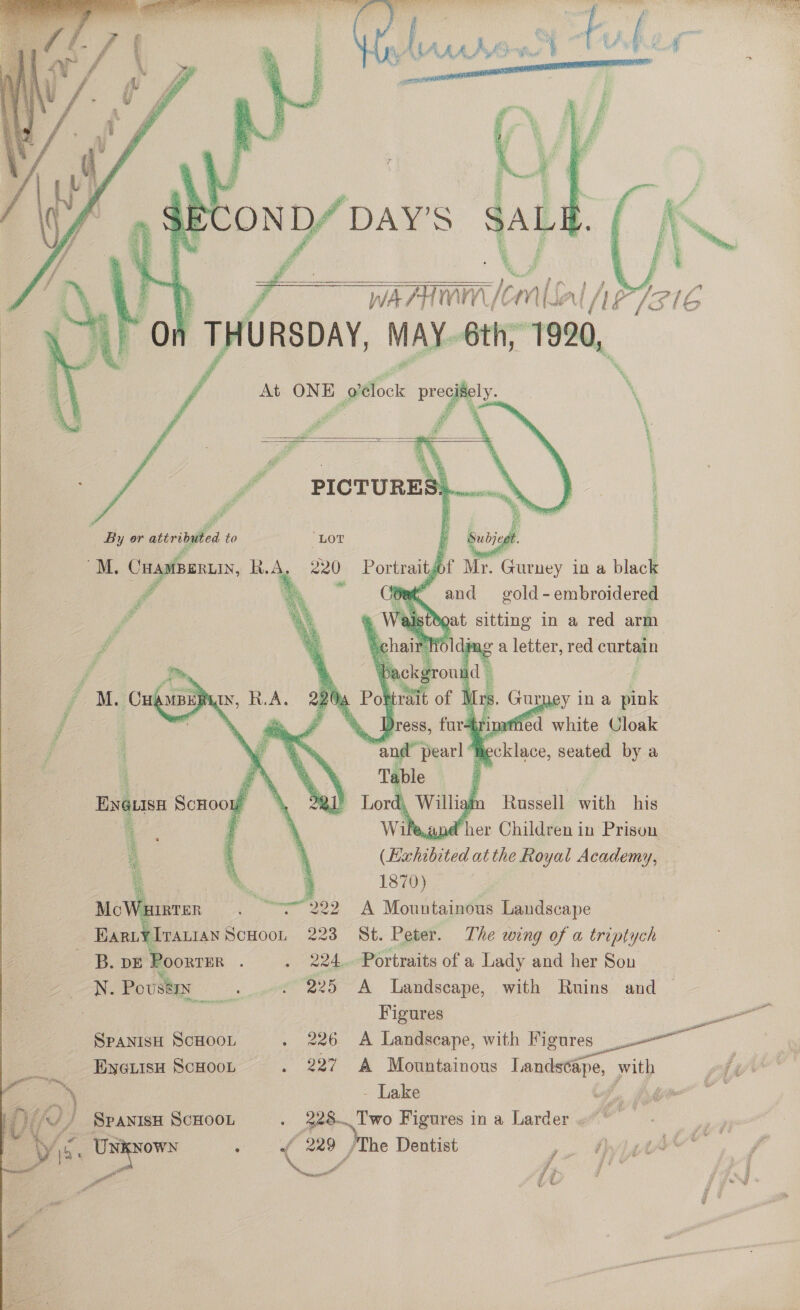 SECOND DAY'S SALE.
On THURSDAY, MAY 6th, 1920,
At ONE o'clock precisely.
PICTURES
By or attributed to LOT Subject.
M. CHAMBERLIN, R.A. 220 Portrait of Mr. Gurney in a black
Coat and gold-embroidered
Waistcoat sitting in a red arm
chair holding a letter, red curtain
background
M. CHAMBERLIN, R.A. 220A Portrait of Mrs. Gurney in a pink
Dress, fur-trimmed white Cloak
and pearl necklace, seated by a
Table
ENGLISH SCHOOL 221 Lord William Russell with his
Wife and her Children in Prison
(Exhibited at the Royal Academy,
1870)
MCWHIRTER . . 222 A Mountainous Landscape
EARLY ITALIAN SCHOOL 223 St. Peter. The wing of a triptych
B. DE POORTER . . 224 Portraits of a Lady and her Son
N. POUSSIN . . 225 A Landscape, with Ruins and
Figures
SPANISH SCHOOL . 226 A Landscape, with Figures
ENGLISH SCHOOL . 227 A Mountainous Landscape, with
Lake
SPANISH SCHOOL . 228 Two Figures in a Larder
UNKNOWN . . 229 The Dentist